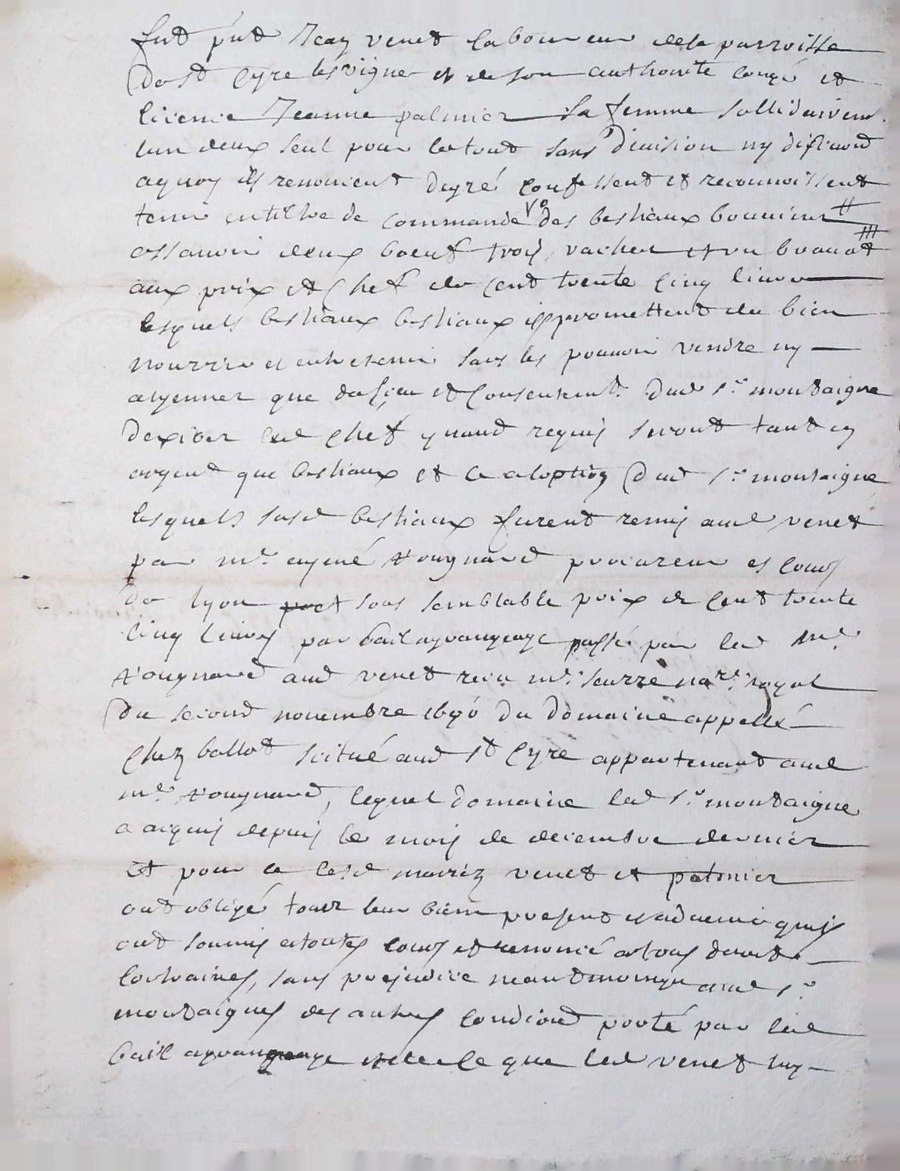 fut p'nt Jean venet laboureur de la parroisse
de St Cyre les vigne et de son authorité congé et
licence Jeanne palmier sa femme sollidairem.
lun deux seul pour le tout sans division ny
aquoy ils renoncent degré confessent et reconnoissent
tenir en tiltre de commande des bestiaux bouvine
assavoir deux boeuf trois vaches et un
aux prix et chef de cent trente cinq livres
lesquels bestiaux bestiaux ils promettent de bien
nourrir et entretenir sans les pouvoir vendre ny
alyenner que du sceu et consentement dud Sr. montaigne
de led chef quand requis seront tant en
argent que bestiaux et ce aloption dud Sr. montaigne
lesquels susd bestiaux furent remis aud venet
par mr. aymé procureur es cours
de lyon sous semblable prix de cent trente
cinq livres par bail agrangeage passé par led Mr.
aud venet receu mr. nore. royal
du second novembre 1690 du domaine appellé
Chez ballot scitué aud St Cyre appartenant aud
mr. lequel domaine led Sr. montaigne
a acquis depuis le mois de decembre dernier
Et pour ce lesd mariez venet et palmier
ont obligé tous leur bien present et advenir quils
ont soumis atoutes cours et renoncé atous droits
contraires, sans prejudice neantmoings aud Sr.
montaigne des autres condions porté par led
bail agrangeage que led venet luy